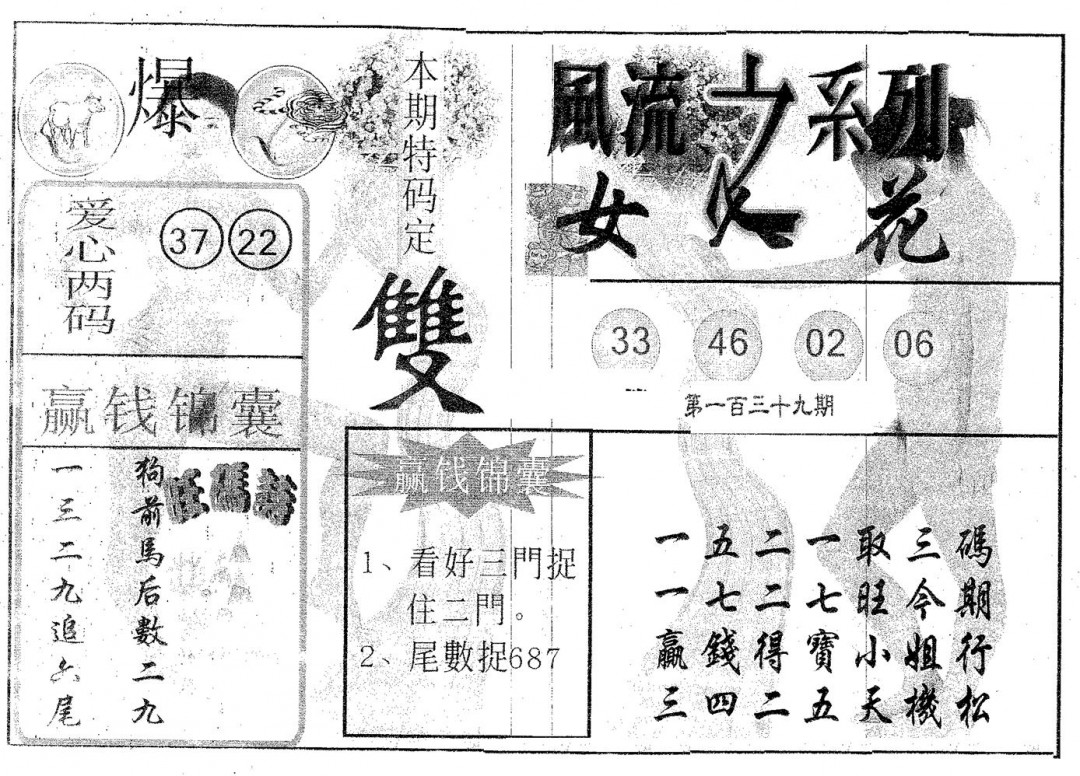 爆
本期特码定
雙
爱心两码
37 22
赢钱锦囊
狗前馬后數二九
一三二九追六尾
赢钱锦囊
1、看好三門捉
住二門。
2、尾數捉687
風流之系列
女人花
33 46 02 06
第一百三十九期
一五二一取三碼
一七二七旺今期
贏錢得寶小姐行
三四二五天機松